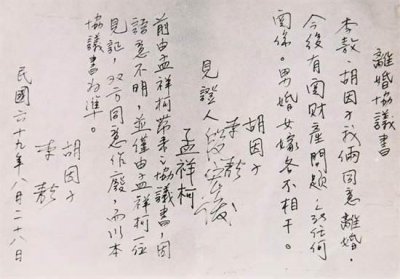 離婚協議書
李敖、胡因子我倆同意離婚。
今後有関財產問題及任何
関係。男婚女嫁各不相干。
胡因子
李敖
見證人
孟祥柯
前由孟祥柯帶來之協議書，因
語意不明，並僅由孟祥柯一位
見証，双方同意作廢，而以本
協議書為準。
胡因子
李敖
民國六十九年八月二十八日